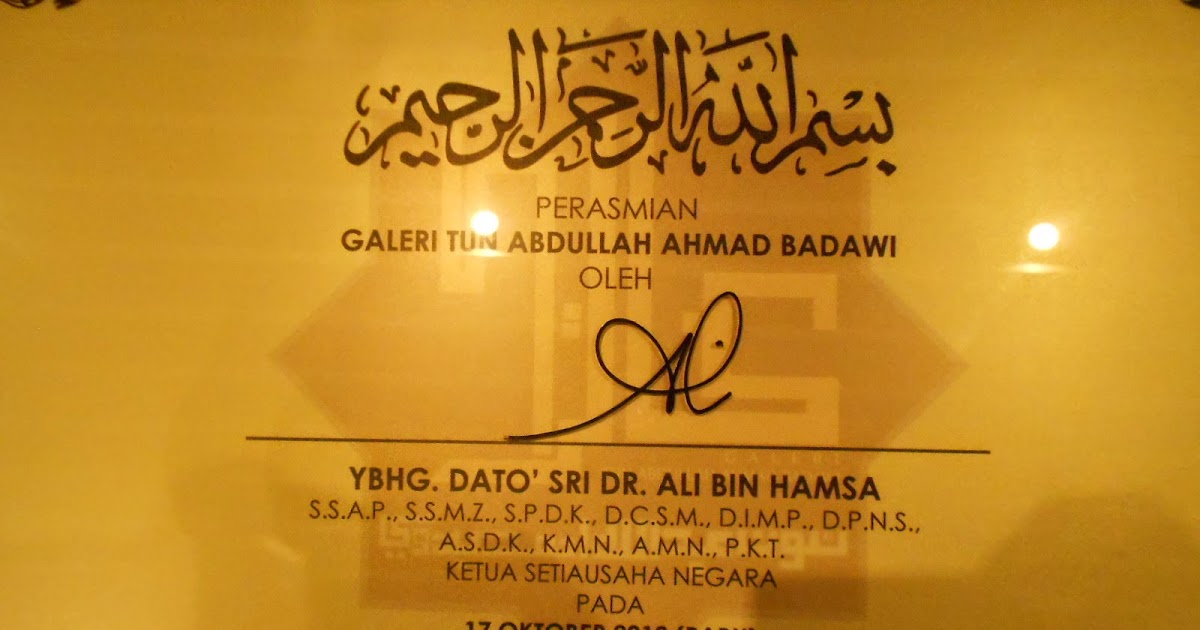 بسم الله الرحمن الرحيم
PERASMIAN
GALERI TUN ABDULLAH AHMAD BADAWI
OLEH
Ali
YBHG. DATO' SRI DR. ALI BIN HAMSA
S.S.A.P., S.S.M.Z., S.P.D.K., D.C.S.M., D.I.M.P., D.P.N.S.,
A.S.D.K., K.M.N., A.M.N., P.K.T.
KETUA SETIAUSAHA NEGARA
PADA
17 OKTOBER